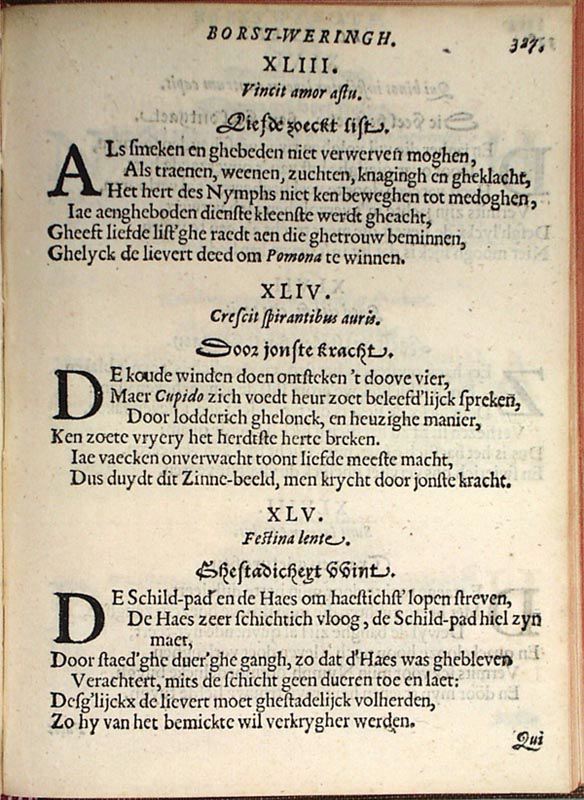 BORST-WERINGH. 327.
XLIII.
Vincit amor aſtu.
Liefde zoeckt liſt.
ALs ſmeken en ghebeden niet verwerven moghen,
Als traenen, weenen, zuchten, knagingh en gheklacht,
Het hert des Nymphs niet ken beweghen tot medoghen,
Iae aengheboden dienſte kleenſte werdt gheacht,
Gheeft liefde liſt'ghe raedt aen die ghetrouw beminnen,
Ghelyck de lievert deed om Pomona te winnen.
XLIV.
Creſcit ſpirantibus auris.
Door jonſte kracht.
DE koude winden doen ontſteken 't doove vier,
Maer Cupido zich voedt heur zoet beleefd'lijck ſpreken,
Door lodderich ghelonck, en heuzighe manier,
Ken zoete vryery het herdtſte herte breken.
Iae vaecken onverwacht toont liefde meeſte macht,
Dus duydt dit Zinne-beeld, men krycht door jonſte kracht.
XLV.
Feſtina lente.
Gheſtadicheyt VVint.
DE Schild-pad en de Haes om haeſtichſt' lopen ſtreven,
De Haes zeer ſchichtich vloog, de Schild-pad hiel zyn
maet,
Door ſtaed'ghe duer'ghe gangh, zo dat d'Haes was ghebleven
Verachtert, mits de ſchicht geen dueren toe en laet:
Deſg'lijckx de lievert moet gheſtadelijck volherden,
Zo hy van het bemickte wil verkrygher werden.
Qui